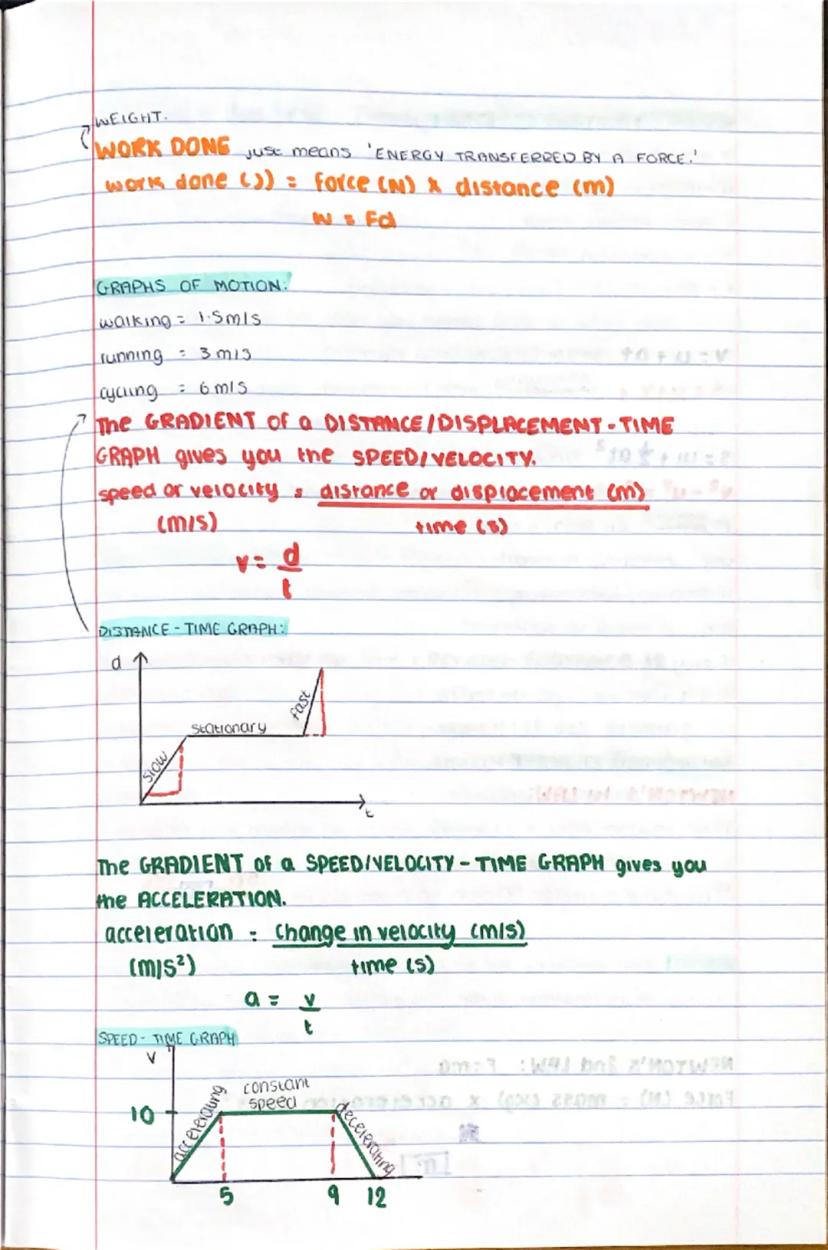 WEIGHT.
WORK DONE just means 'ENERGY TRANSFERRED BY A FORCE.'
work done (J) = force (N) x distance (m)
W = Fd
GRAPHS OF MOTION:
walking = 1.5m/s
running = 3 m/s
cycling = 6 m/s
The GRADIENT of a DISTANCE/DISPLACEMENT-TIME
GRAPH gives you the SPEED/VELOCITY.
speed or velocity = distance or displacement (m)
(m/s) time (s)
v = d
t
DISTANCE-TIME GRAPH:
d
stationary
fast
slow
t
The GRADIENT of a SPEED/VELOCITY-TIME GRAPH gives you
the ACCELERATION.
acceleration = change in velocity (m/s)
(m/s²) time (s)
a = v
t
SPEED-TIME GRAPH
v
constant
speed
accelerating
decelerating
10
5 9 12